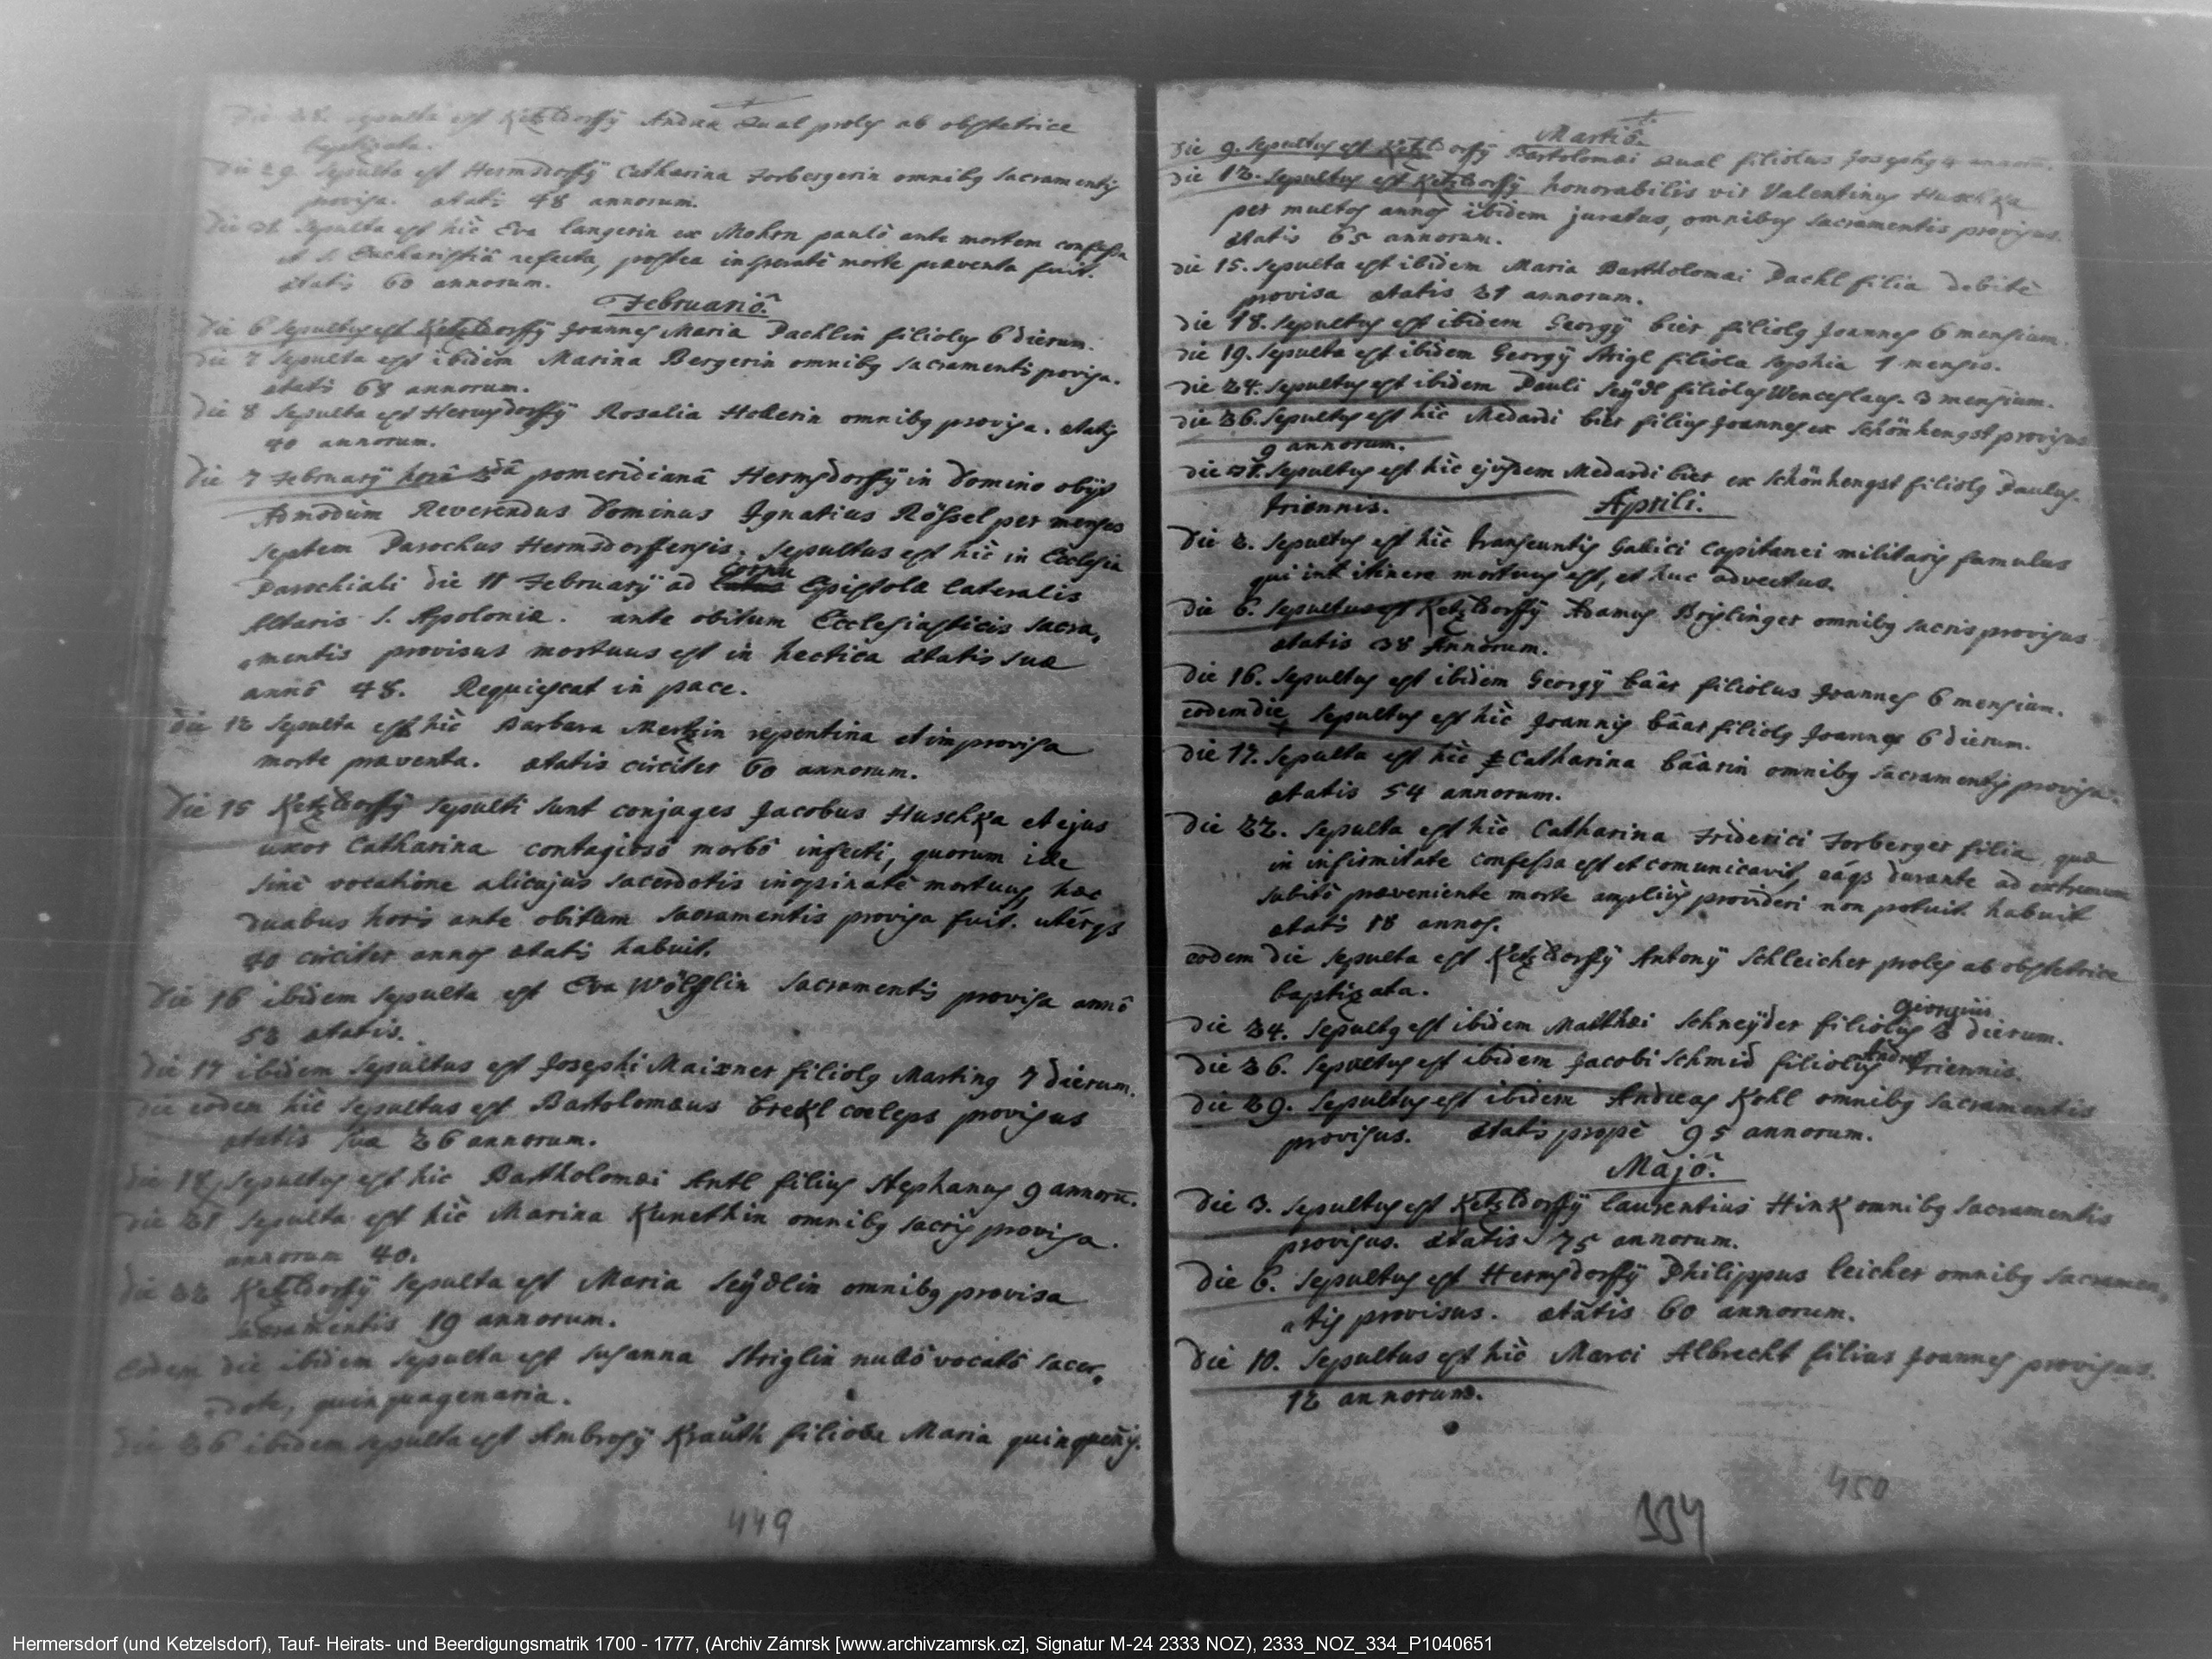 Die 28. sepulta est Ketzldorffÿ Andreæ Zual proles ab obstetrice
baptizata.
Die 29. Sepulta est Hermsdorffÿ Catharina Forbergerin omnibg sacramentis
provisa. ætatis 48 annorum.
Die 31. Sepulta est hic Eva Langerin ex Mohrn paulò ante mortem confessa
et S. Eucharistiâ refecta, postea insperatè morte præventa fuit.
ætatis 60 annorum.
Februariô.
Die 6 Sepultus est Ketzldorffÿ Joannes Maria Pachlin filiolus 6 dierum.
Die 7 Sepulta est ibidem Marina Bergerin omnibg sacramentis provisa.
ætatis 68 annorum.
Die 8 Sepulta est Hermsdorffÿ Rosalia Hollerin omnibg provisa. ætatis
40 annorum.
Die 7 Februarÿ horâ 2dâ pomeridianâ Hermsdorffÿ in Domino obÿt
Admodum Reverendus Dominus Ignatius Rössel per menses
septem Parochus Hermsdorffensis. Sepultus est hic in Ecclesia
Parochiali die 11 Februarÿ ad cornu Epistolæ lateralis
Altaris S. Apoloniæ. ante obitum Ecclesiasticis sacra,
mentis provisus mortuus est in hectica ætatis suæ
annô 48. Requiescat in pace.
Die 12 Sepulta est hic Barbara Mertzin repentina et improvisa
morte præventa. ætatis circiter 60 annorum.
Die 15 Ketzldorffÿ sepulti sunt conjuges Jacobus Huschka et ejus
uxor Catharina contagiosô morbô infecti, quorum ille
sine vocatione alicujus sacerdotis inopinatè mortuus, hæc
duabus horis ante obitum sacramentis provisa fuit. utérqs
40 circiter annos ætatis habuit.
Die 16 ibidem sepulta est Eva Wölfflin sacramentis provisa annô
52 ætatis.
Die 17 ibidem sepultus est Josephi Maixner filiolg Marting 7 dierum.
Die eodem hic sepultus est Bartolomæus Brekl cœleps provisus
ætatis suæ 26 annorum.
Die 18 Sepultus est hic Bartholomæi Antl filius Stephanus 9 annorū.
Die 21 Sepulta est hic Marina Kunethin omnibg sacris provisa.
annorum 40.
Die 22 Ketzldorffÿ sepulta est Maria Seÿdlin omnibg provisa
sacramentis 19 annorum.
Eodem die ibidem sepulta est Susanna Striglin nullô vocatô sacer,
dote, quinquagenaria.
Die 26 ibidem sepulta est Ambrosÿ Krauth filiola Maria quinquenis.
449
Martiô.
Die 9. Sepultus est Ketzldorffÿ Bartolomæi Zual filiolus Josephg 4 annorū.
Die 12. Sepultus est Ketzldorffÿ honorabilis vir Valentinus Huschka
per multos annos ibidem juratus, omnibus sacramentis provisus.
ætatis 65 annorum.
Die 15. Sepulta est ibidem Maria Bartholomæi Pachl filia debitè
provisa ætatis 21 annorum.
Die 18. Sepultus est ibidem Georgÿ Bier filiolg Joannes 6 mensium.
Die 19. Sepulta est ibidem Georgÿ Strigl filiola Sophia 1 mensis.
Die 24. Sepultus est ibidem Pauli Seÿdl filiolus Wenceslaus. 3 mensium.
Die 26. Sepultus est hic Medardi Bier filius Joannes ex Schönhengst provisus
9 annorum.
Die 31. Sepultus est hic ejusdem Medardi Bier ex Schönhengst filiolg Paulus.
triennis.
Aprili.
Die 2. Sepultus est hic transeuntis Gallici Capitanei militaris famulus
qui int itinere mortuus est, et huc advectus.
Die 6. Sepultus est Ketzldorffÿ Adamus Brislinger omnibg sacris provisus
ætatis 38 Annorum.
Die 16. Sepultus est ibidem Georgÿ Bäar filiolus Joannes 6 mensium.
eodem die Sepultus est hic Joannis Bäar filiolg Joannes 6 dierum.
Die 17. Sepulta est hic Catharina Bäarin omnibg sacramentis provisa.
ætatis 54 annorum.
Die 22. Sepulta est hic Catharina Friderici Forberger filia, quæ
in infirmitate confessa est et comunicavit, eáqs durante ad extremum
subitò præveniente morte ampliùs provideri non potuit. habuit
ætatis 18 annos.
eodem die sepulta est Ketzldorffÿ Antonÿ Schleicher proles ab obstetrice
baptizata.
Georgius
Die 24. Sepultg est ibidem Matthæi Schneÿder filiolus 2 dierum.
Andreas
Die 26. Sepultus est ibidem Jacobi Schmid filiolus triennis.
Die 29. Sepultus est ibidem Andreas Kohl omnibg sacramentis
provisus. ætatis propè 95 annorum.
Majô.
Die 3. Sepultus est Ketzldorffÿ Laurentius Hink omnibg sacramentis
provisus. ætatis 75 annorum.
Die 6. Sepultus est Hermsdorffÿ Philippus Leicher omnibg sacramen,
tis provisus. ætatis 60 annorum.
Die 10. Sepultus est hic Marci Albrecht filius Joannes provisus.
12 annorum.
450
334
Hermersdorf (und Ketzelsdorf), Tauf- Heirats- und Beerdigungsmatrik 1700 - 1777, (Archiv Zámrsk [www.archivzamrsk.cz], Signatur M-24 2333 NOZ), 2333_NOZ_334_P1040651